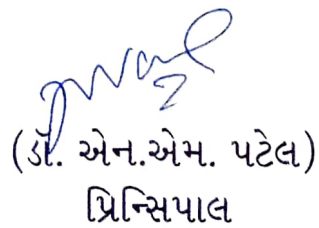 (ડૉ. એન.એમ. પટેલ)
પ્રિન્સિપાલ